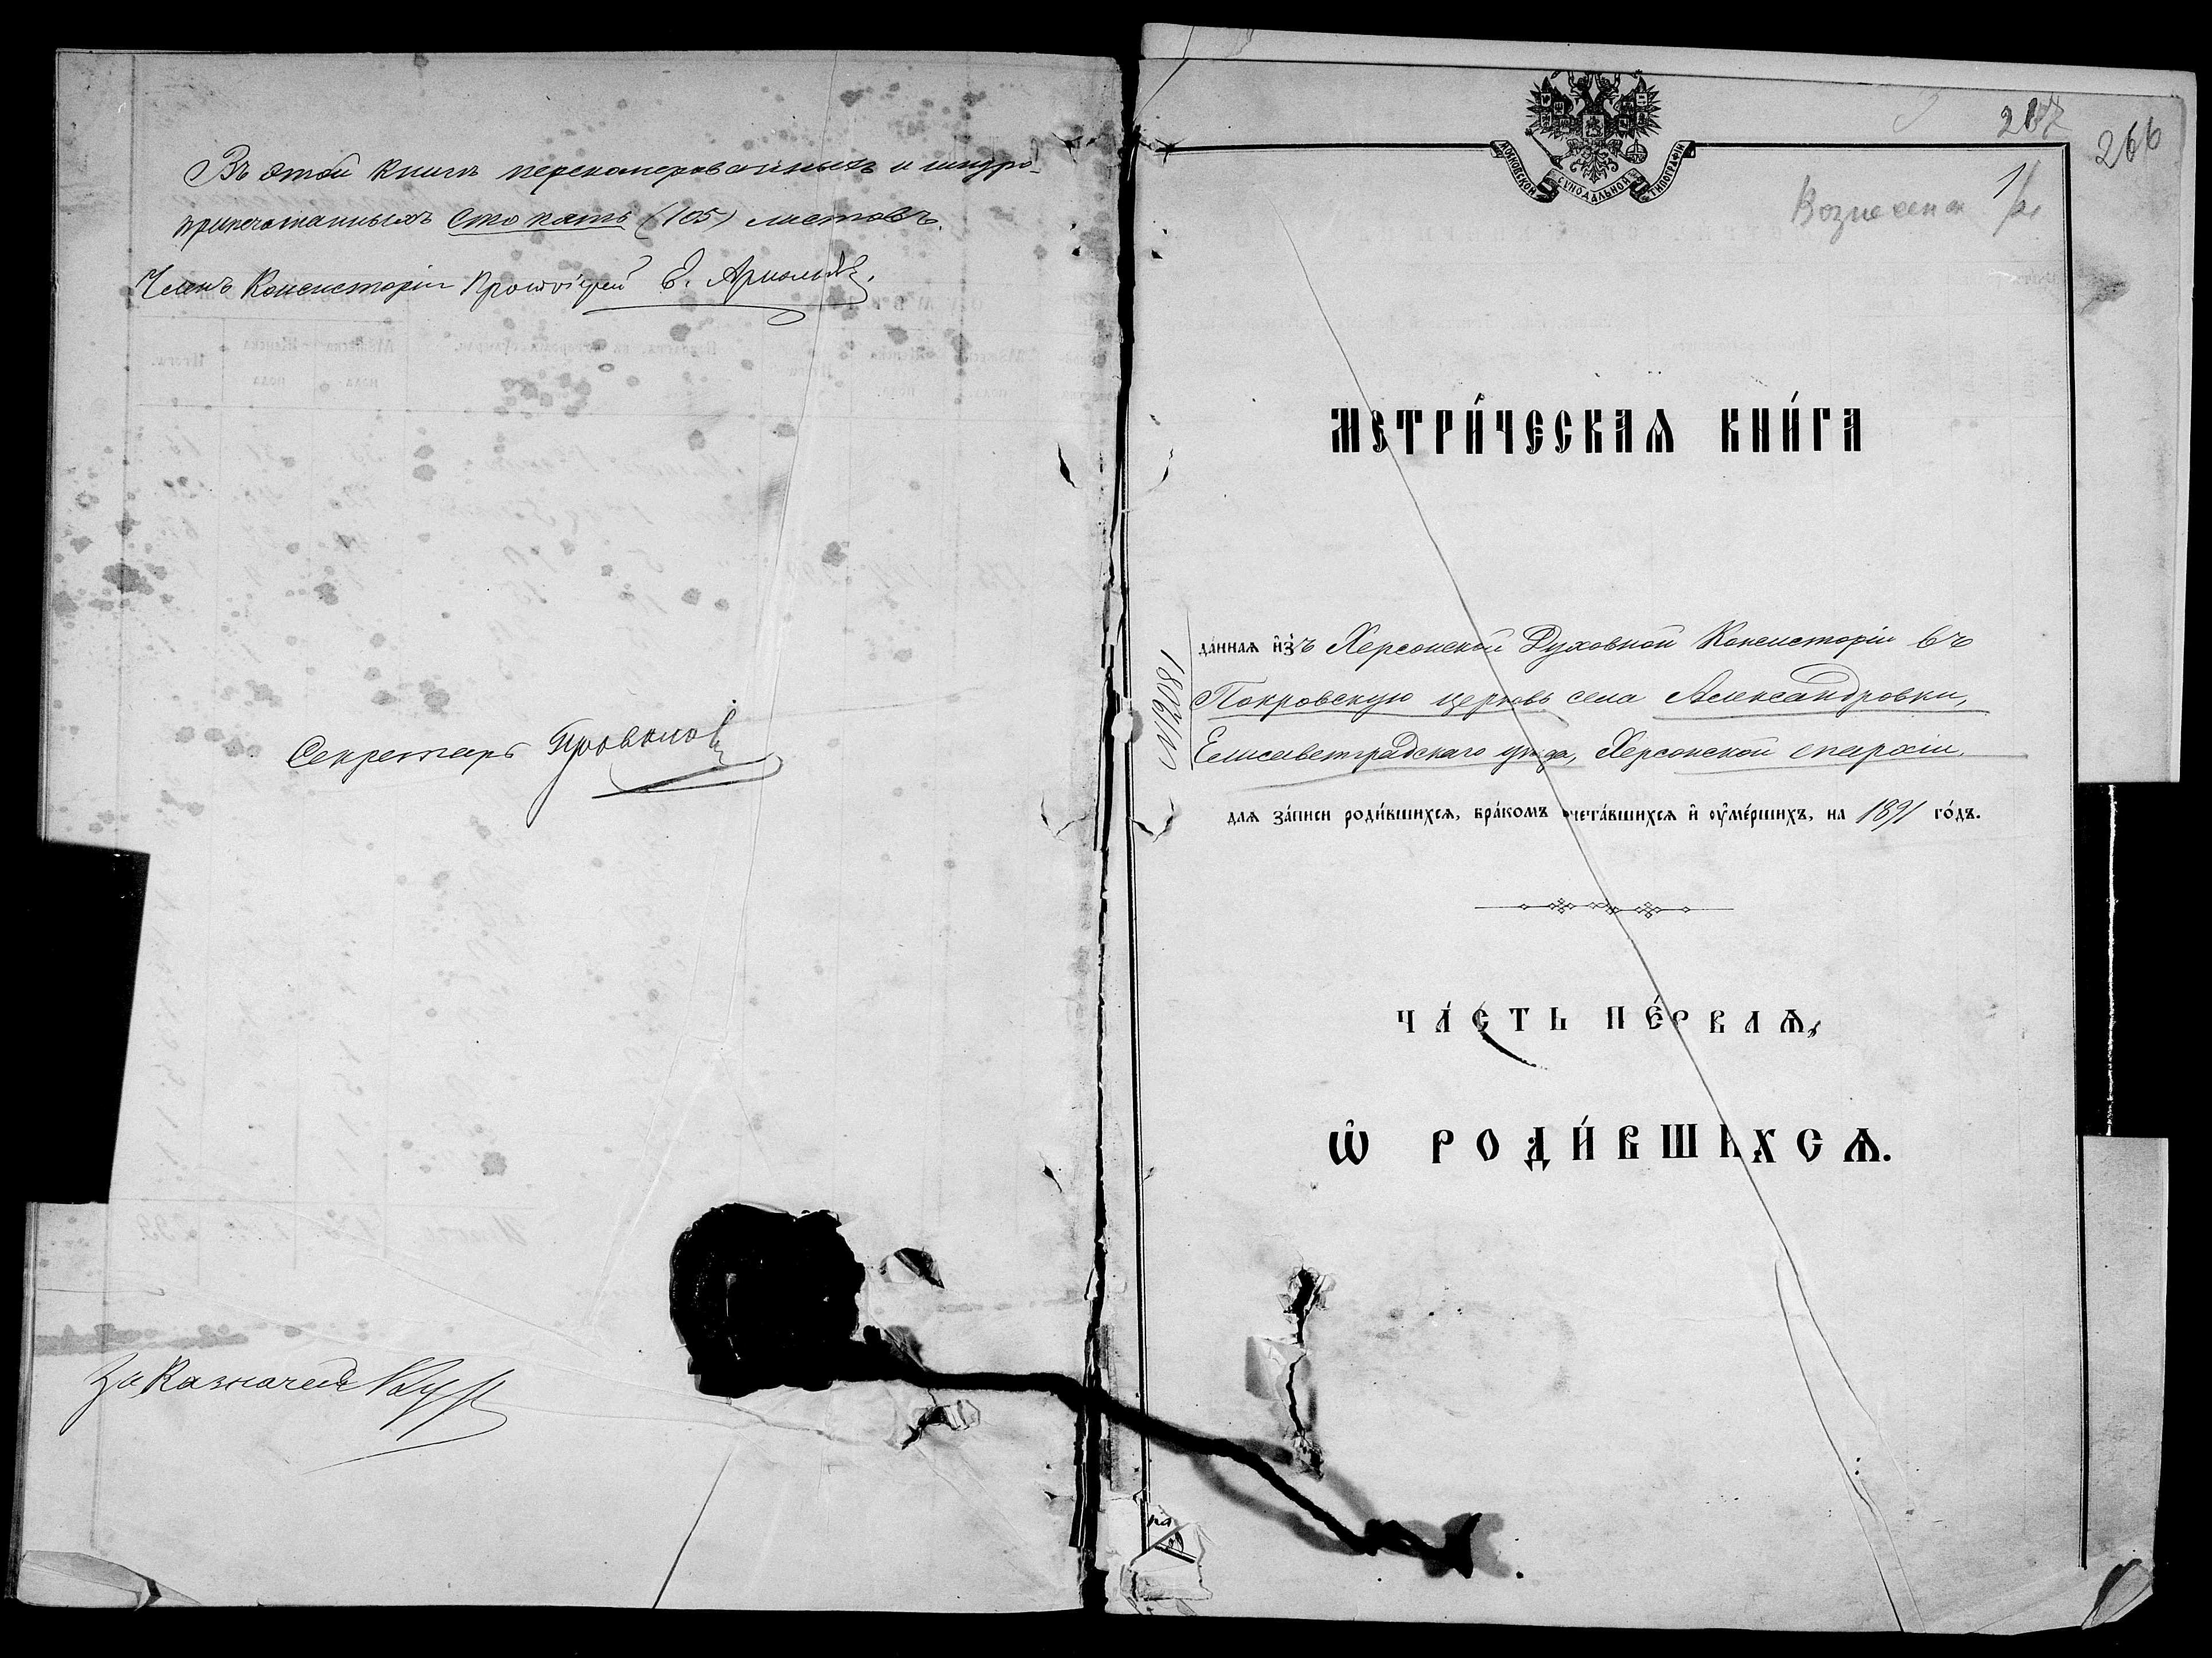 Въ этой книгѣ перенумерованныхъ и шнуро-
припечатанныхъ сто пять (105) листовъ.
Членъ Консисторіи Протоіерей
Секретарь
За Казначея
МОСКОВСКОЙ СѴНОДАЛЬНОЙ ТИПОГРАФІИ
266
1
МЕТРИ́ЧЕСКАѦ КНИ́ГА
№12081
да́ннаѧ и҆зъ Херсонской Духовной Консисторіи въ
Покровскую церковь села Александровки,
Елисаветградскаго уѣзда, Херсонской епархіи,
длѧ за́писи роди́вшихсѧ, бра́комъ сочета́вшихсѧ и҆ ᲂу҆ме́ршихъ, на 1891 го́дъ.
ЧА́СТЬ ПЕ́РВАѦ,
Ѽ РОДИ́ВШИХСѦ.